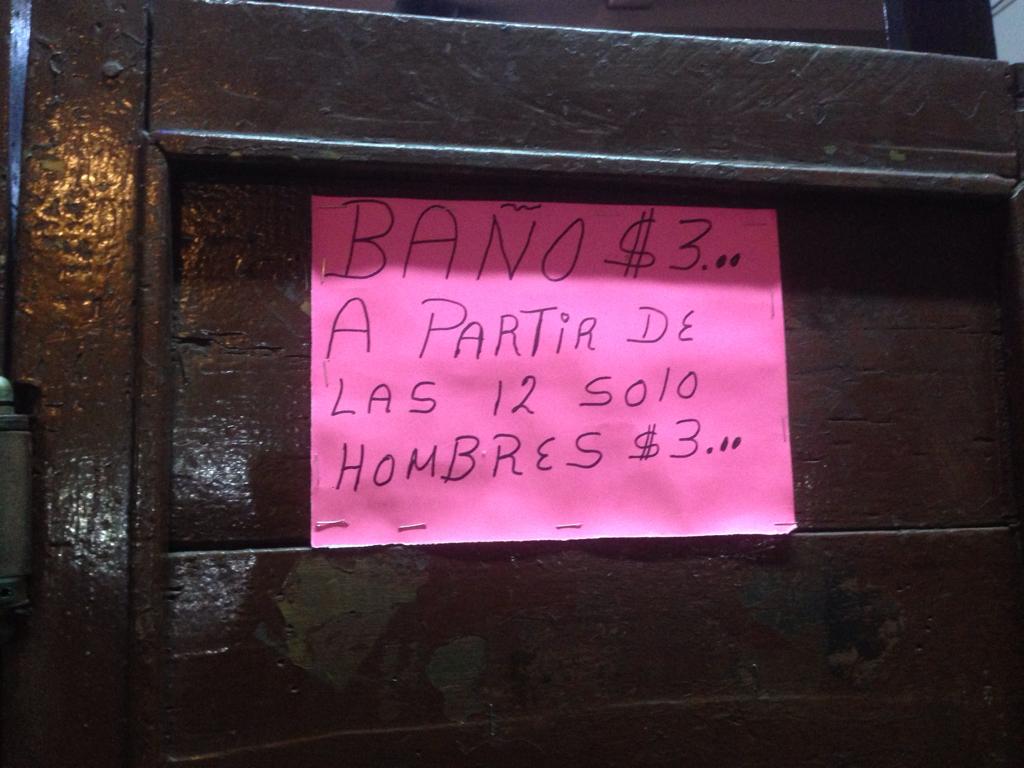 BAÑO $3...
A PARTiR DE
LAS 12 SOlO
HOMBRES $3...